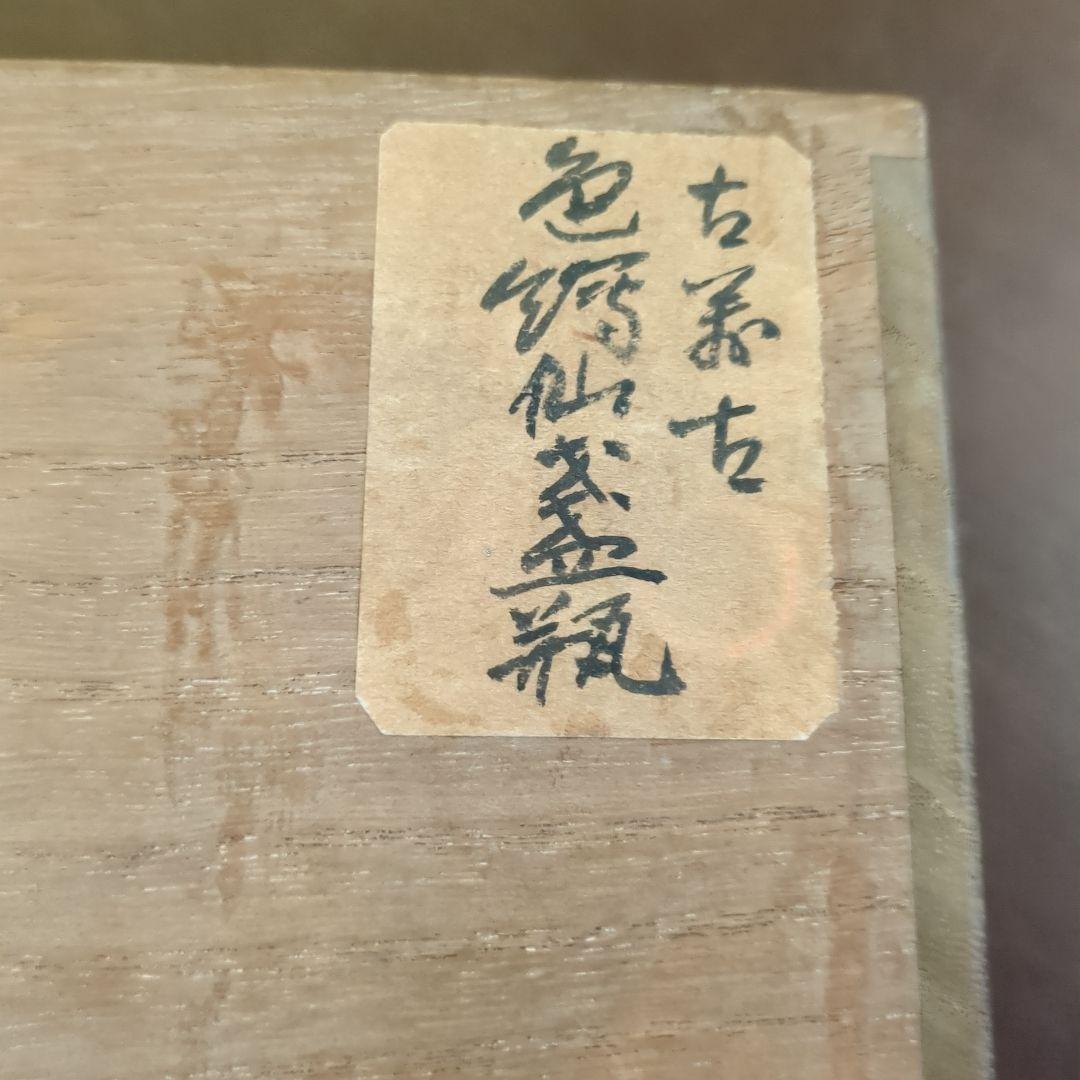 古萬古
色繪仙盞瓶